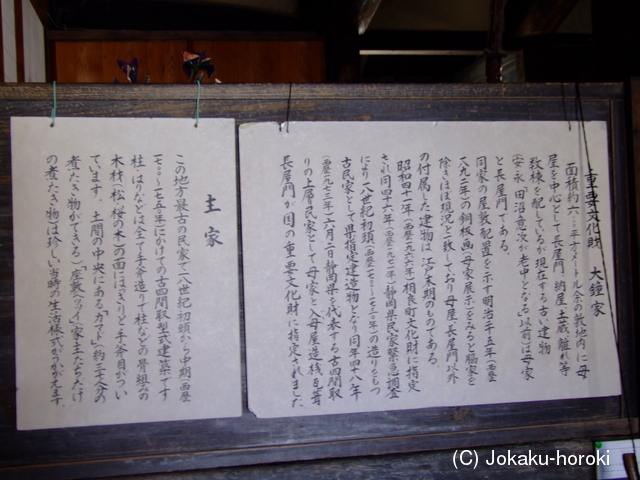 重要文化財　大鐘家
面積約六〇〇〇平方メートル余の敷地内に母
屋を中心として長屋門、納屋、土蔵、離れ等
致棟を配しているが現在する古い建物
田沼意次が老中となる以前は母家
と長屋門である。
同家の屋敷配置を示す明治二十五年(西歴
一八九二年)の銅板画(母家展示)をみると脇家を
除きほぼ現況と一致しており母屋、長屋門以外
の付属した建物は、江戸末期のものである。
昭和四十一年(西歴一九六六年)相良町文化財に指定
され同四十六年(西歴一九七一年)静岡県民家緊急調査
により一八世紀初頭(西歴一七〇〇〜一七三〇年)の造りをもつ
古民家として県指定建造物となり同年四十八年
(西歴一九七三年)六月二日静岡県を代表する古四間取
りの上層民家として母家と入母屋造桟瓦葺
長屋門が国の重要文化財に指定されました
主家
この地方最古の民家で一八世紀初頭から中期(西歴
一七〇〇〜一七五〇年)にかけての古四間取型式建築です
柱、はりなどは全て手斧造りで柱などの骨組みの
木材(松、桜の木)の面にはくっきりと手斧目がつい
ています。土間の中央にある「カマド」約三十人分の
煮たきができる「座敷ヘッツイ」家主たちだけ
の煮たき物は珍しい当時の生活様式がうかがえます。
(C) Jokaku-horoki